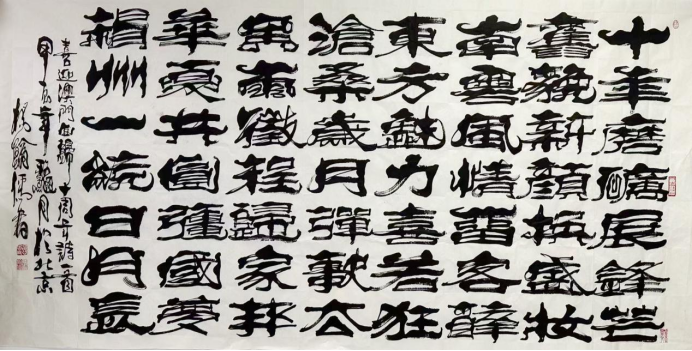 十年磨礪展鋒芒
舊貌新顏換盛妝
南風情留客醉
東方魅力喜若狂
滄桑歲月彈
無徵程歸家邦
華夏共圓強國夢
州一統日月
喜迎澳門回歸十周年詩一首
年月於北京
楊書